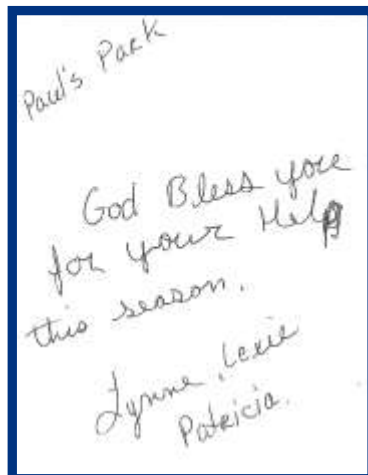 Paul's Park
God Bless you
for your Help
this season.
Lynne, Lexie
Patricia.